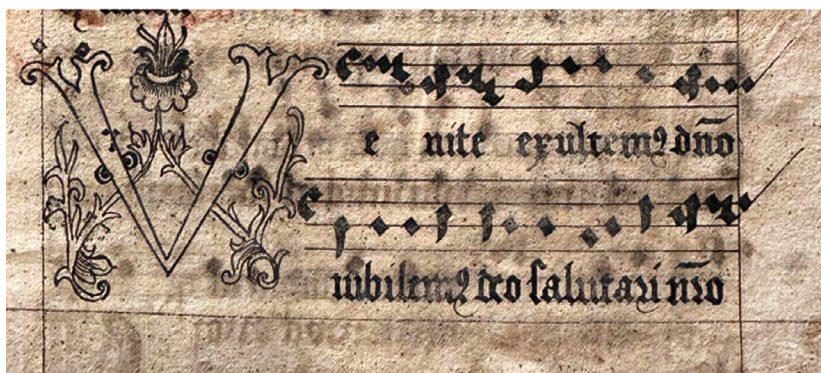 Venite exultemꝰ dn̄o
iubilemꝰ deo salutari nr̄o